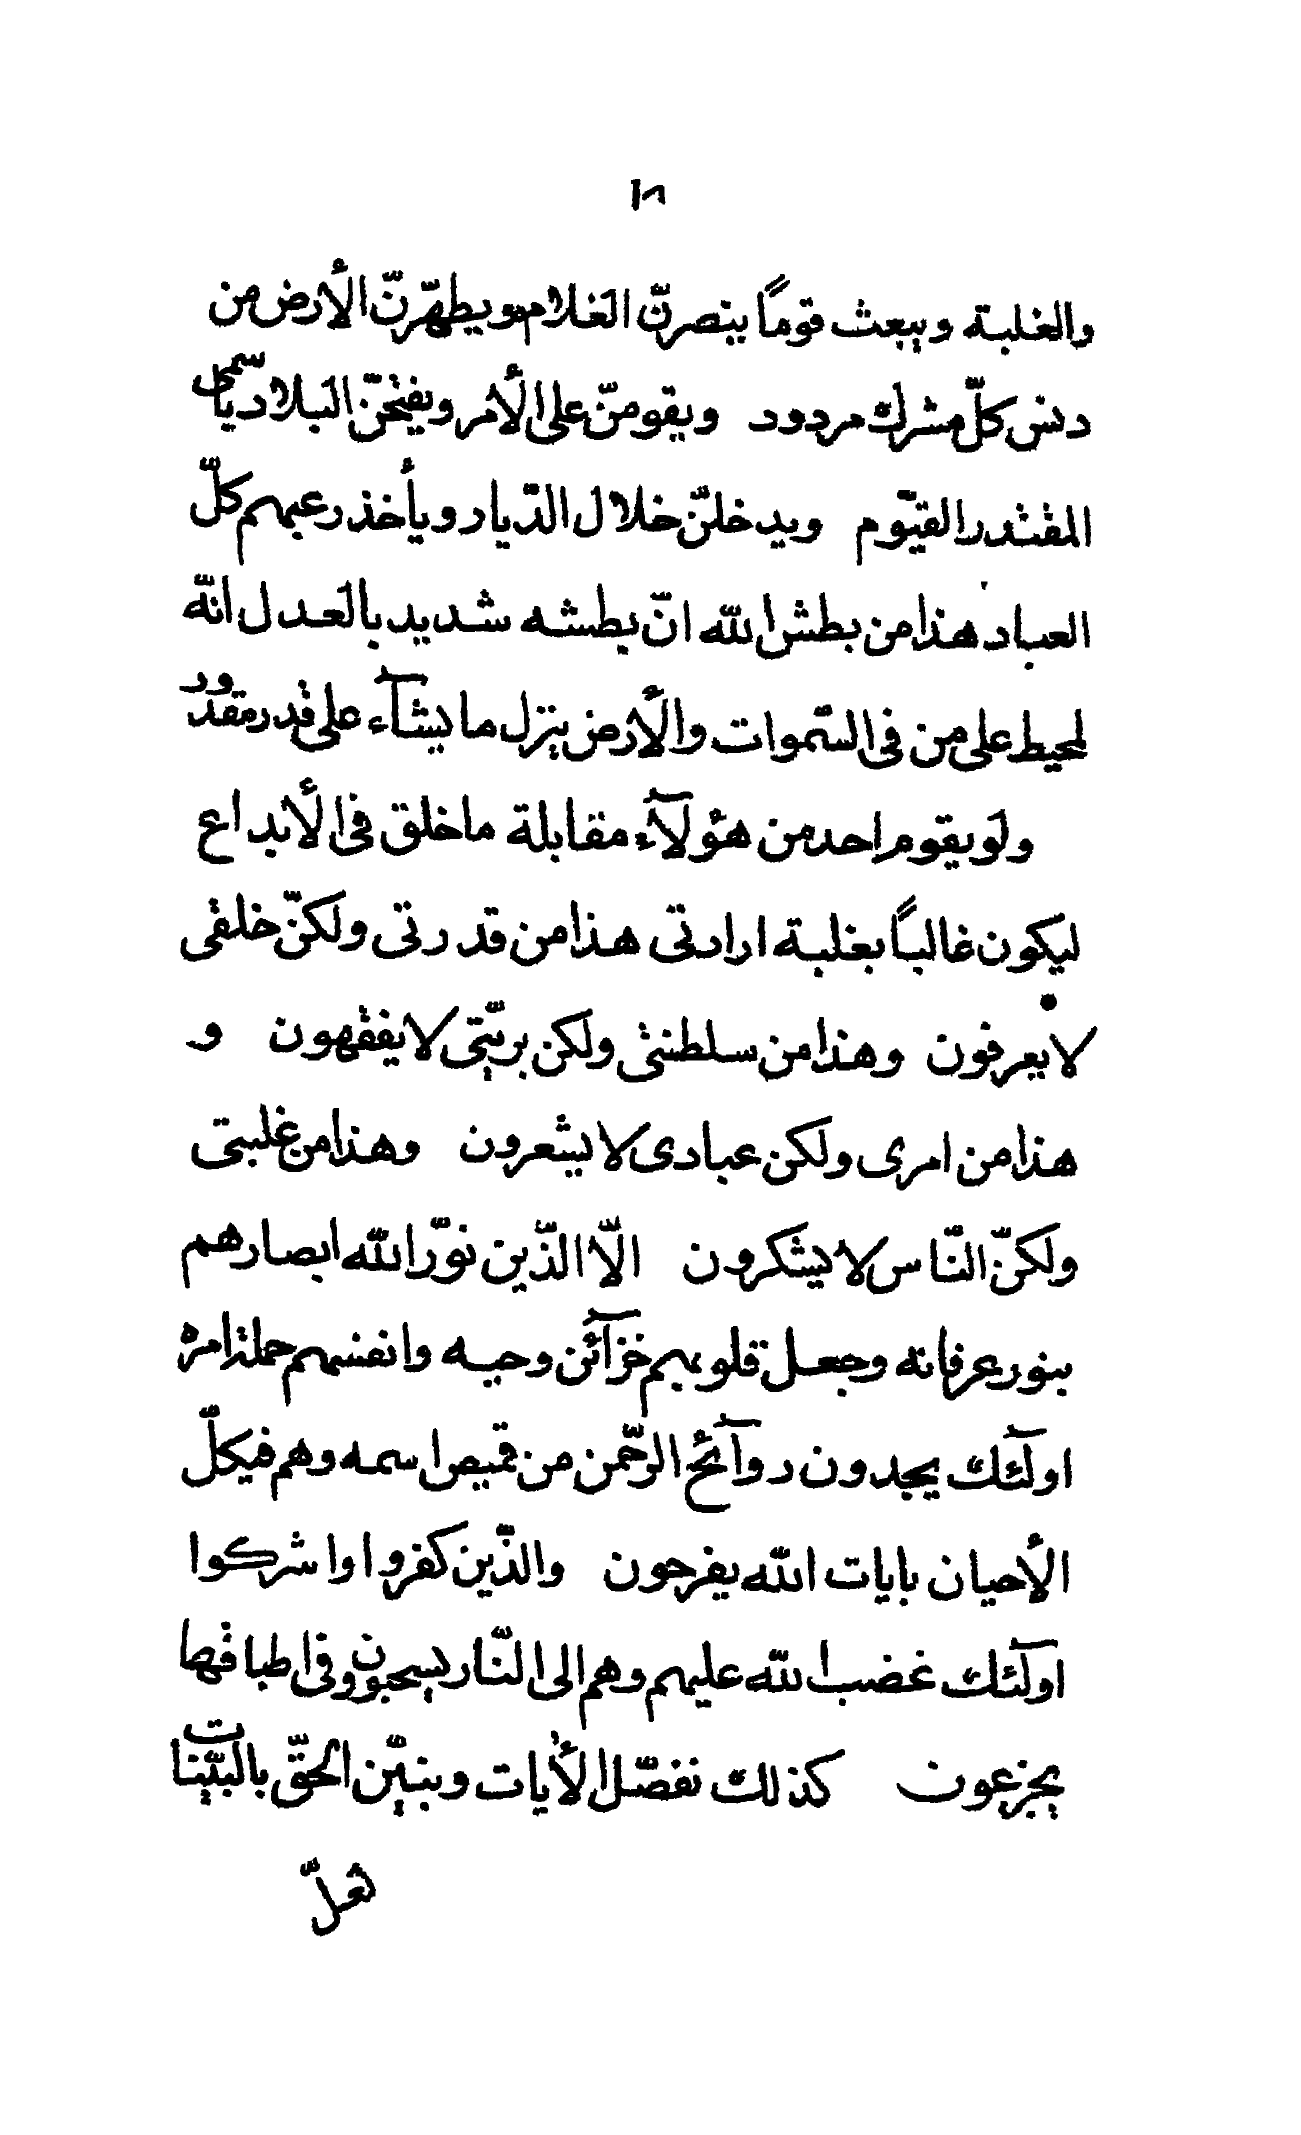 ١٨
والغلبة ويبعث قومًا ينصرنّ الغلام ويطهّرنّ الأرض من
دنس كلّ مشرك مردود ويقومنّ على الأمر ويفتحنّ البلاد باسمی
المقتدر القيّوم ويدخلنّ خلال الدّيار ويأخذ رعبهم كلّ
العباد هذا من بطش الله انّ بطشه شديد بالعدل انّه
لمحيط على من فى السّموات والأرض ينزل ما يشآء على قدر مقدور
ولو يقوم احد من هؤلآء مقابلة ما خلق فى الأبداع
ليكون غالبًا بغلبة ارادتى هذا من قدرتى ولكنّ خلقى
لا يعرفون وهذا من سلطنتى ولكن بريّتى لا يفقهون و
هذا من امرى ولكن عبادى لا يشعرون وهذا من غلبتى
ولكنّ النّاس لا يشكرون الّا الّذين نوّر الله ابصارهم
بنور عرفانه وجعل قلوبهم خزآئن وحيه وانفسهم حملة امره
اولٓئك يجدون روآئح الرحّمن من قميص اسمه وهم فيكلّ
الأحيان بايات الله يفرحون والذّين كفروا واشركوا
اولٓئك غضب الله عليهم وهم الى النّار يسحبون وفى اطباقها
يجزعون كذلك نفصّل الأيات ونبيّن الحقّ بالبيّنات
لعلّ